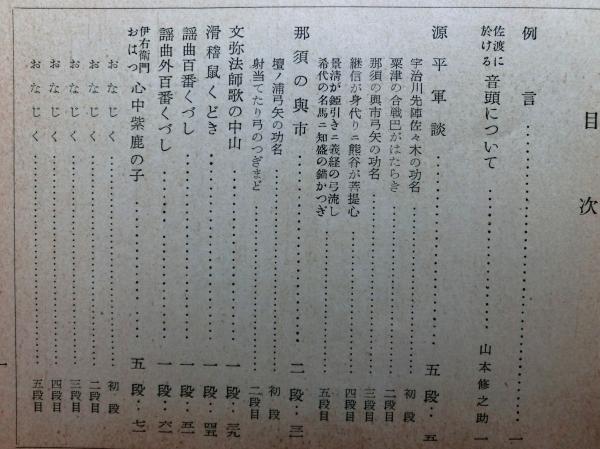 目次
例言……………一
佐渡に於ける 音頭について……………山本修之助 一
源平軍談……………五段……五
宇治川先陣佐々木の功名……………初段
粟津の合戦巴がはたらき……………二段目
那須の與市弓矢の功名……………三段目
継信が身代り＝熊谷が菩提心……………四段目
景清が錣引き＝義経の弓流し
希代の名馬＝知盛の錨かつぎ……………五段目
那須の與市……………二段……三一
壇ノ浦弓矢の功名……………初段
射当てたり弓のつぎまど……………二段目
文弥法師歌の中山……………一段……三九
滑稽鼠くどき……………一段……四五
謡曲百番くづし……………一段……五一
謡曲外百番くづし……………一段……六一
伊右衛門おはつ 心中紫鹿の子……………五段……七一
おなじく……………初段
おなじく……………二段目
おなじく……………三段目
おなじく……………四段目
おなじく……………五段目
一